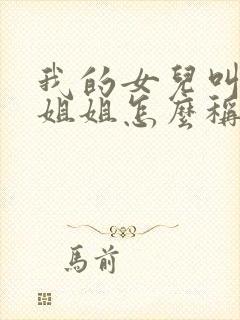 我的女兒叫
姐姐怎麼稱
馬前